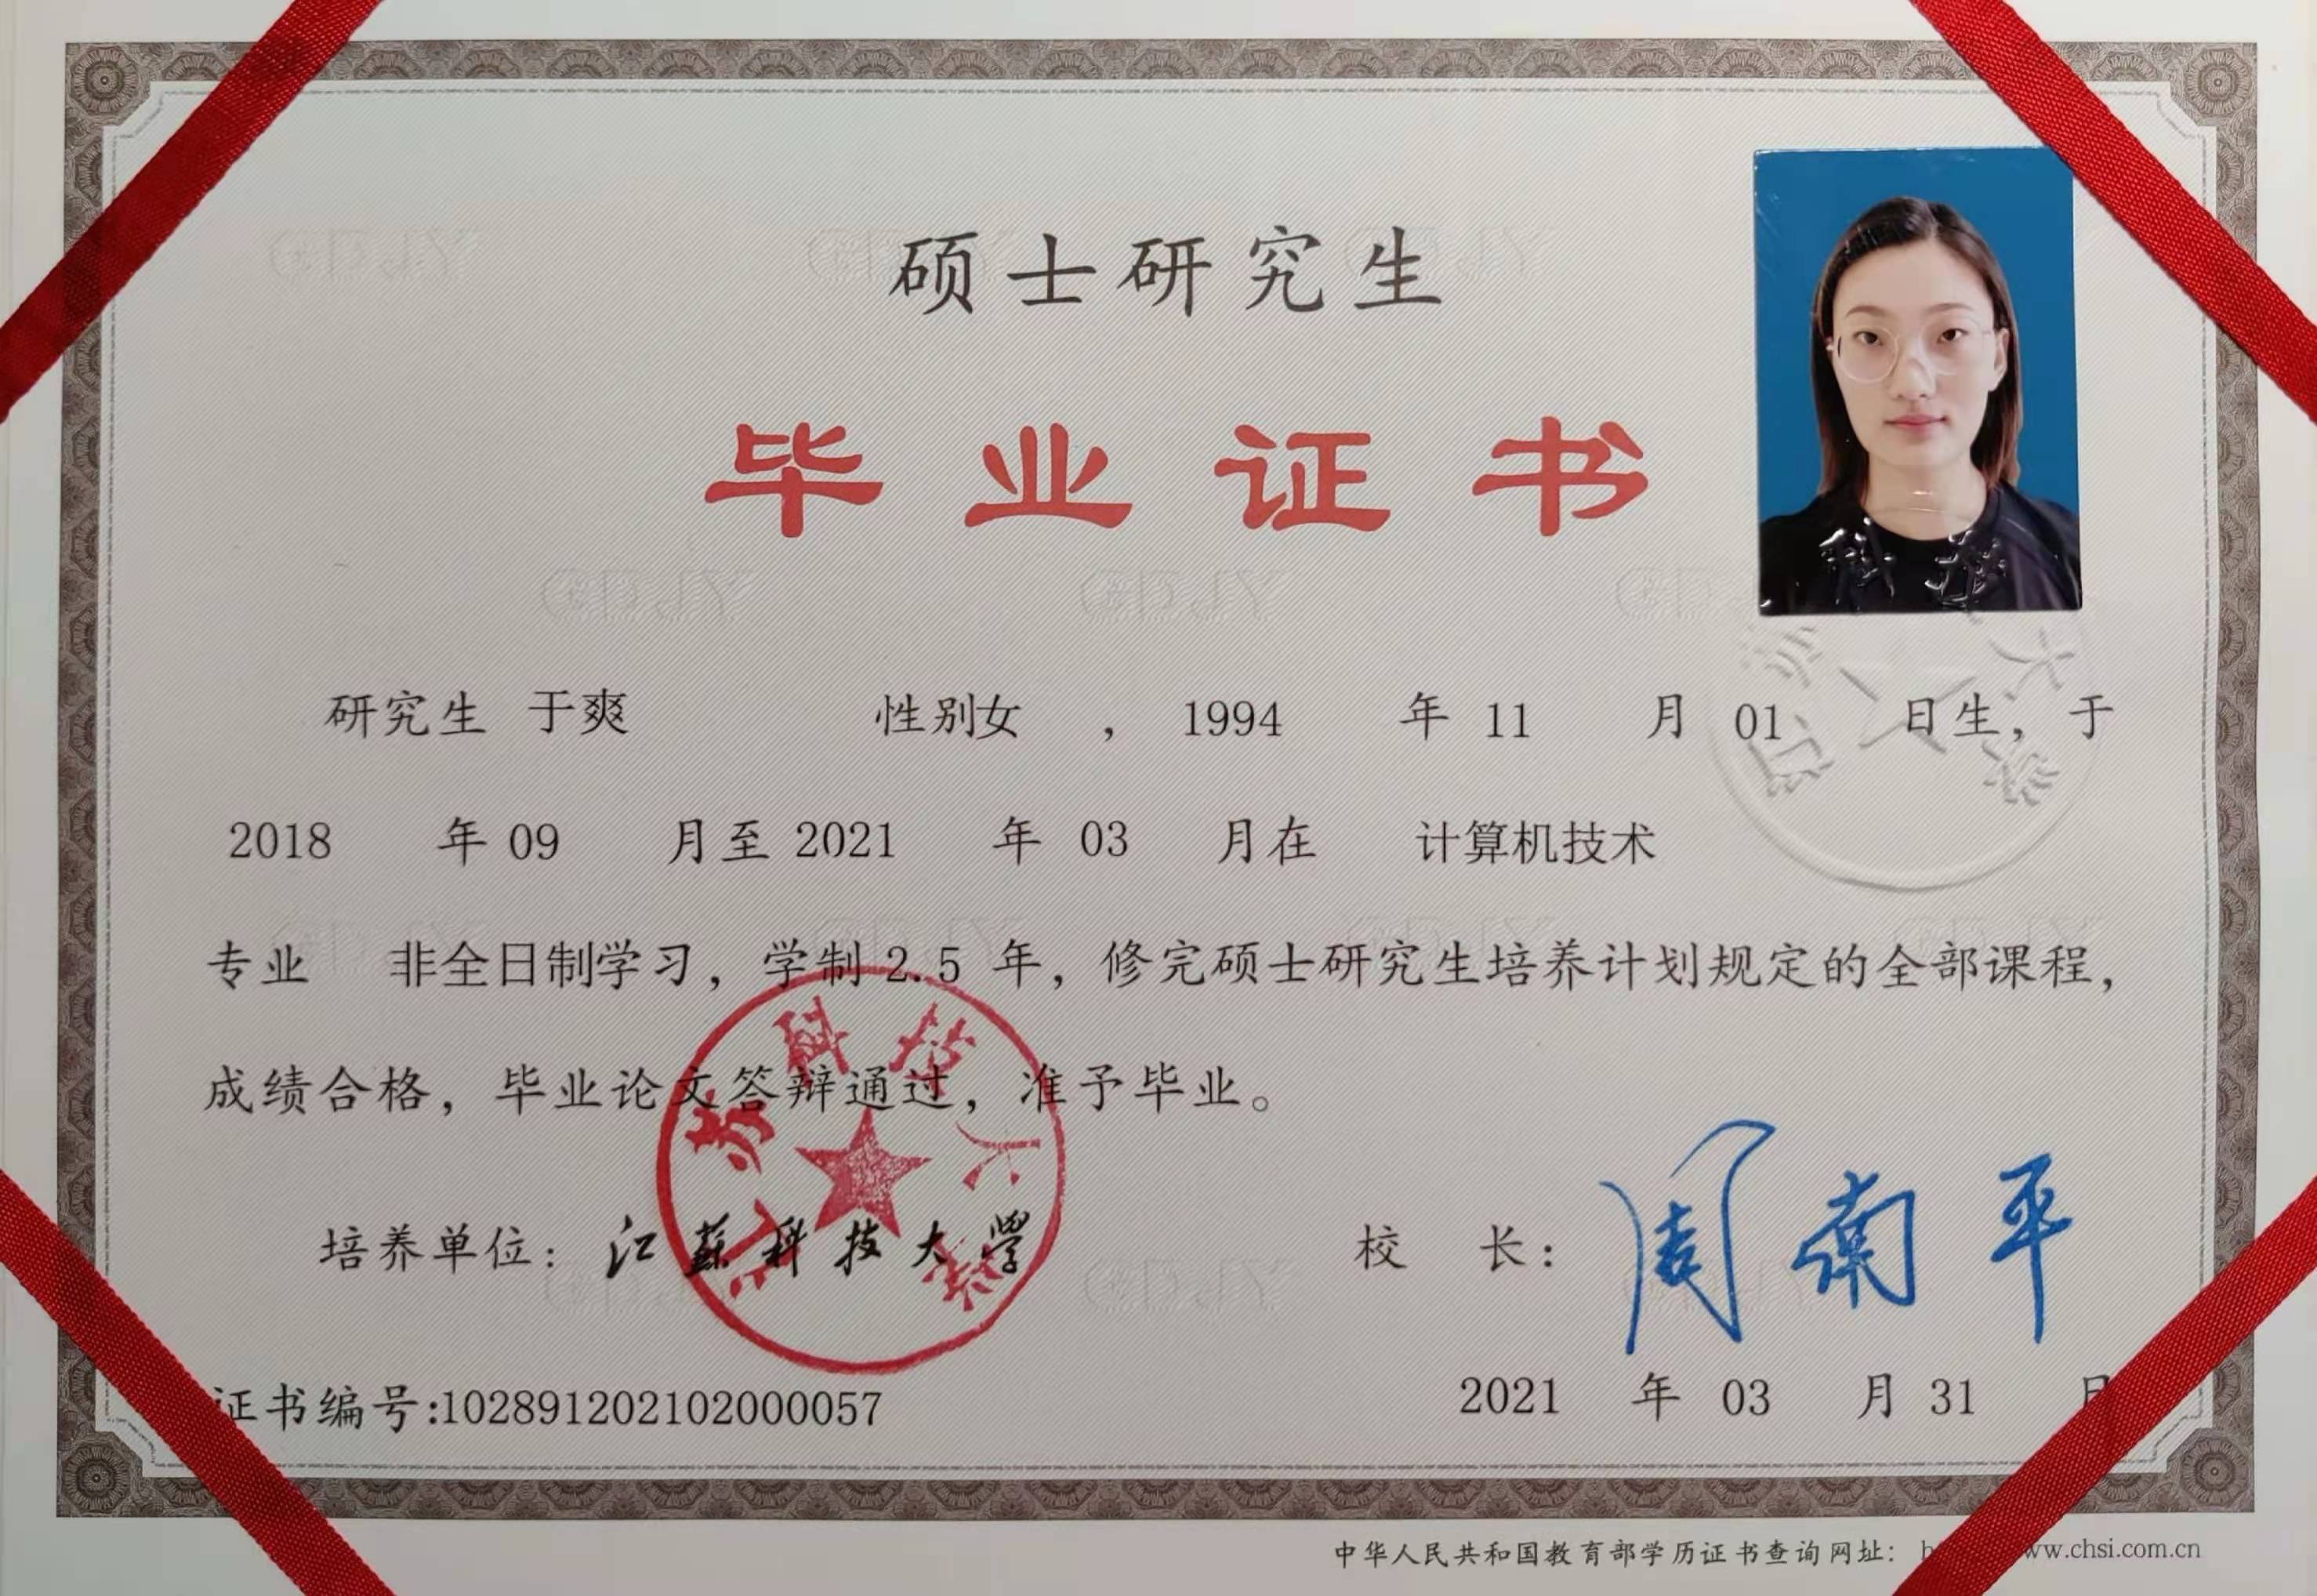 硕士研究生
毕业证书
研究生 于爽 性别女 , 1994 年 11 月 01 日生, 于
2018 年 09 月至 2021 年 03 月在 计算机技术
专业 非全日制学习, 学制 2.5 年, 修完硕士研究生培养计划规定的全部课程,
成绩合格, 毕业论文答辩通过, 准予毕业。
江苏科技大学
培养单位: 江蘇科技大學
校 长: 周南平
证书编号:102891202102000057
2021 年 03 月 31 日
中华人民共和国教育部学历证书查询网址: www.chsi.com.cn